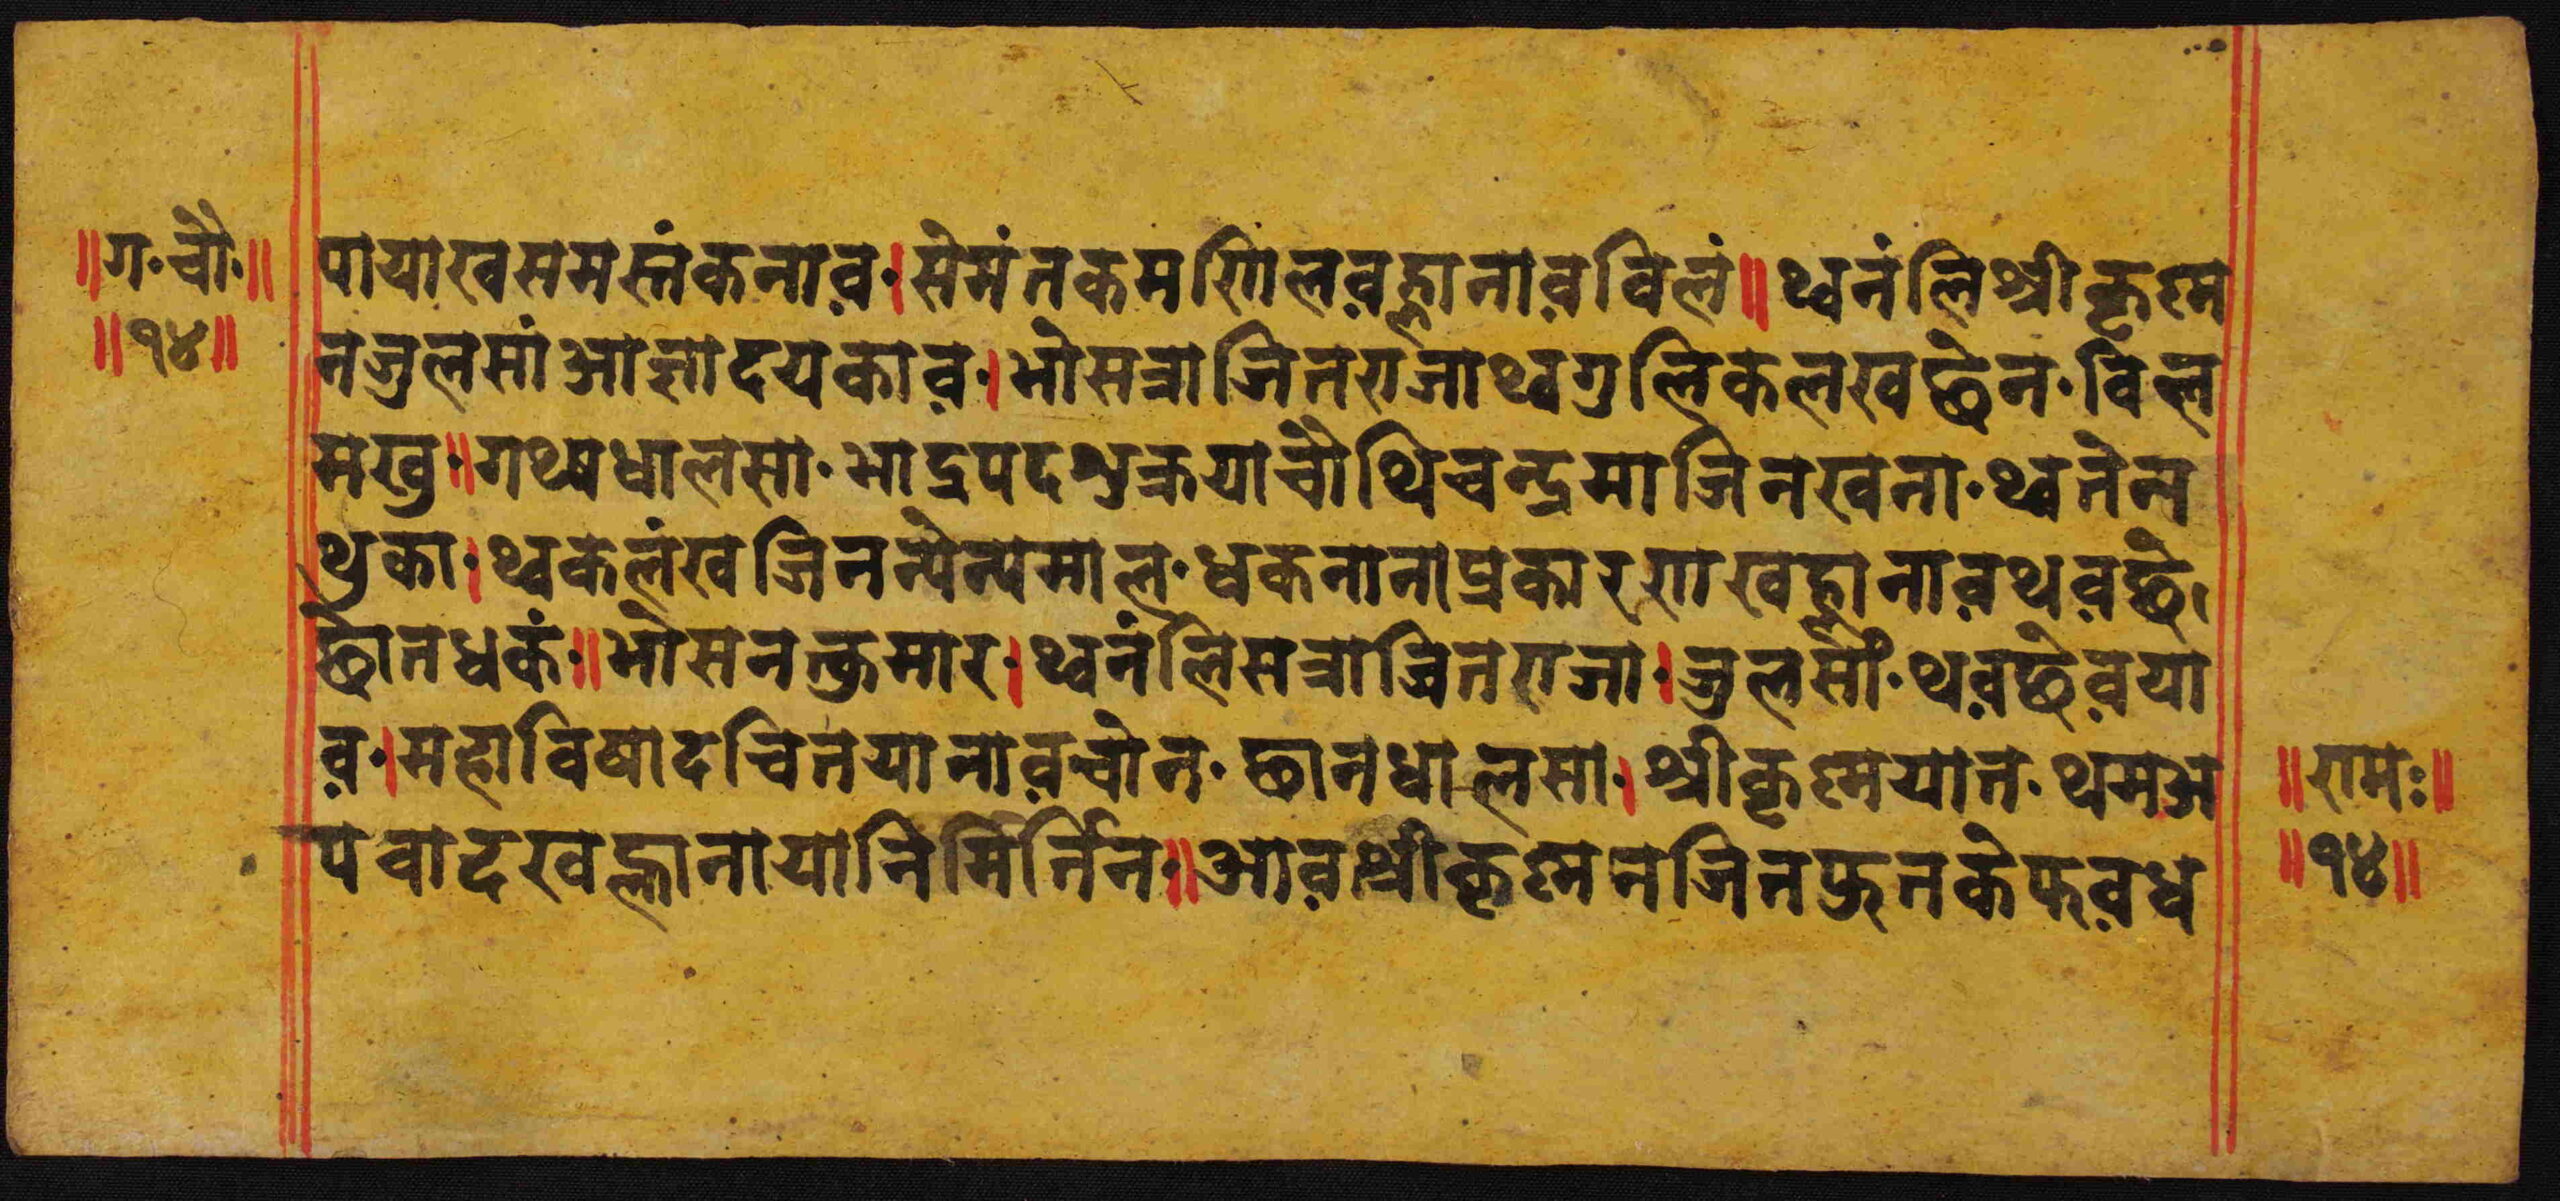 ॥ग॰चौ॰॥
॥१४॥
पायाखसमस्तंकनाव॰।सेमंतकमणिलवह्लानावविलं॥थ्वनंलिश्रीकृष्ण
नजुलसांआज्ञादयकाव॰।भोसत्राजितराजाथ्वगुलिकलखछेन॰विल
मखु॰॥गथ्यधालसा॰भाद्रपदशुक्लयाचौथिचन्द्रमाजिनखना॰थ्वतेन
थुका॰।थ्वकलंखजिनन्येन्यमाल॰धकनानाप्रकारणखह्लानावथवछे
छोतधकं॰॥भोसनत्कुमार॰।थ्वनंलिसत्राजितराजा॰।जुलसां॰थवछेवया
व॰।महाविषादचित्तयानावचोन॰छानधालसा॰।श्रीकृष्णयात॰थमअ
पवादखह्लानायानिमिर्त्तिन॰॥आवश्रीकृष्णनजिनफुतकेफवध
॥रामः॥
॥१४॥